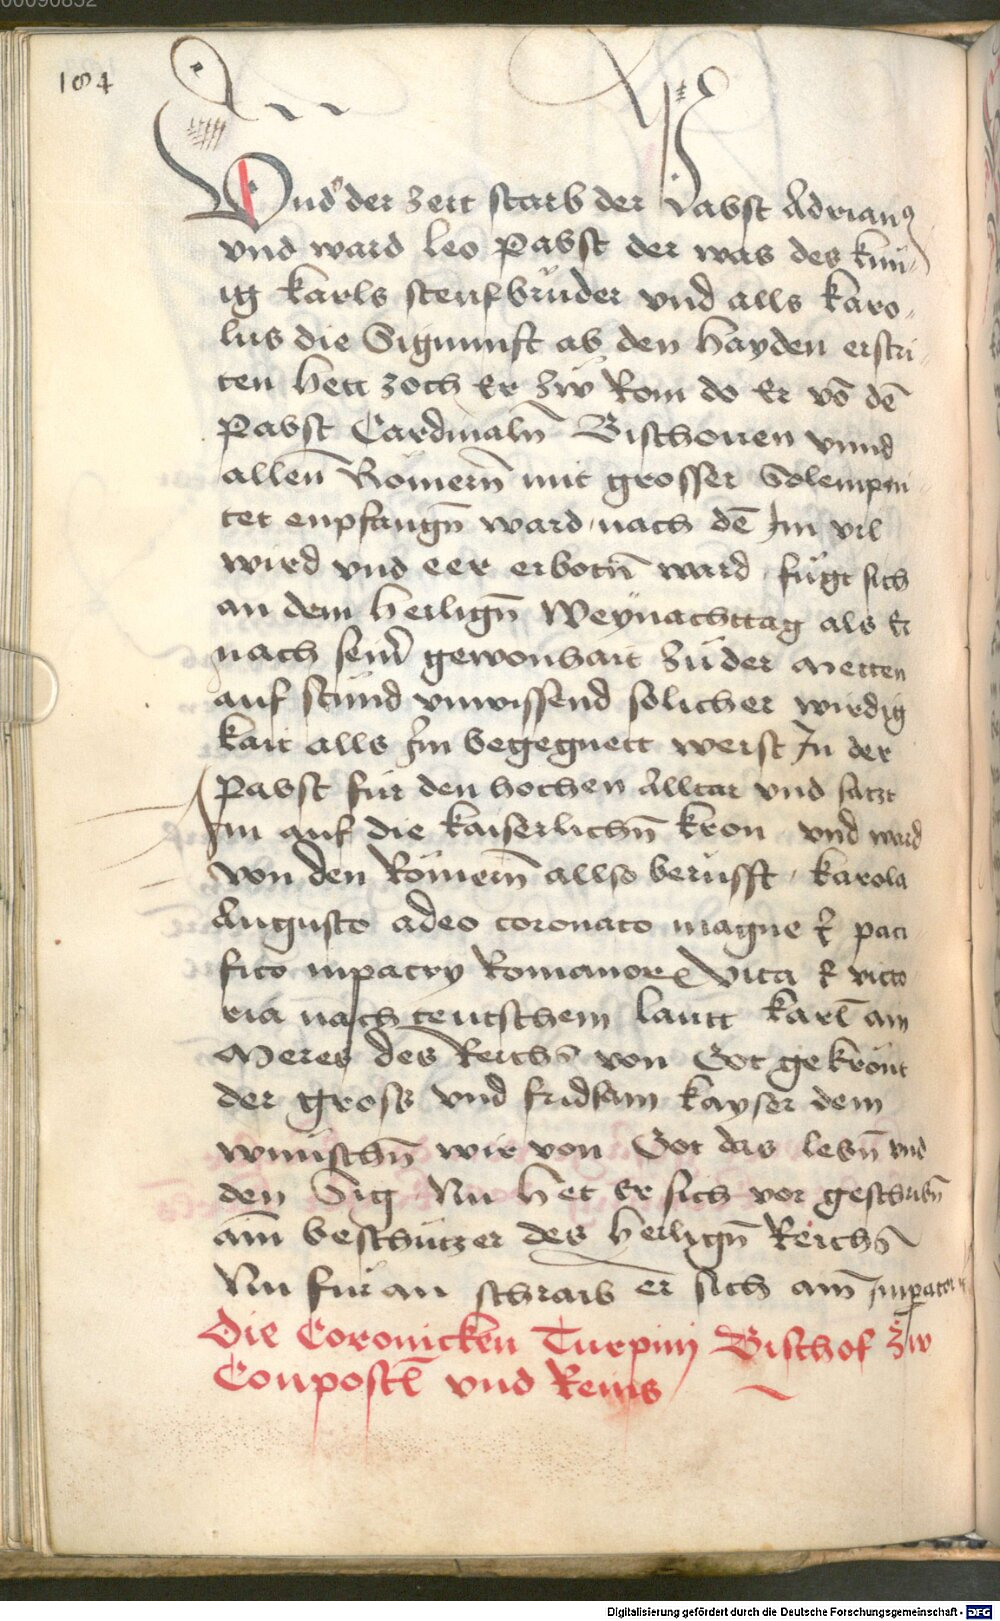 00090852
164
Vnd der zeit starb der Pabst Adrianꝰ
vnd ward leo Pabst der was des kün-
ig karls steufbrüder vnd alls karo-
lus die Signunft ab den hayden erstri-
ten hett zoch Er zw Rom do Er võ dẽ
Pabst Cardinaln̄ Bischouen vnnd
allen̄ Römern̄ mit grosser Solempni-
tet enpfangn̄ ward nach dē Im vil
wird vnd eer erbotn̄ ward fügt sich
an dem heilign̄ Weynachttag als Er
nach seinr̄ gewonhait zu der Metten
auf stünd vnwissend solicher wirdig
kait alls Im begegnett weist In der
Pabst für den hochen Alltar vnd satzt
Im auf die kaiserlichn̄ kron vnd ward
von den Römern̄ allso berüfft karola
Augusto adeo coronato magne & paci-
fico inpatry Romanor Vita & victo
ria nach teutschem lautt karl̄ ain
Meres des Reichs von Got gekrönt
der gross vnd fridsam kayser dem
wünschn̄ wir von Got das lebn̄ vnd
den Sig Nu het Er sich vor geschribn̄
ain̄ beschützer des heilign̄ Reichs
Nu für an schraib er sich ain̄ Inpator
Die Coronicken Turpinj Bischof zw
Conpostl̄ vnd Reins
Digitalisierung gefördert durch die Deutsche Forschungsgemeinschaft - DFG